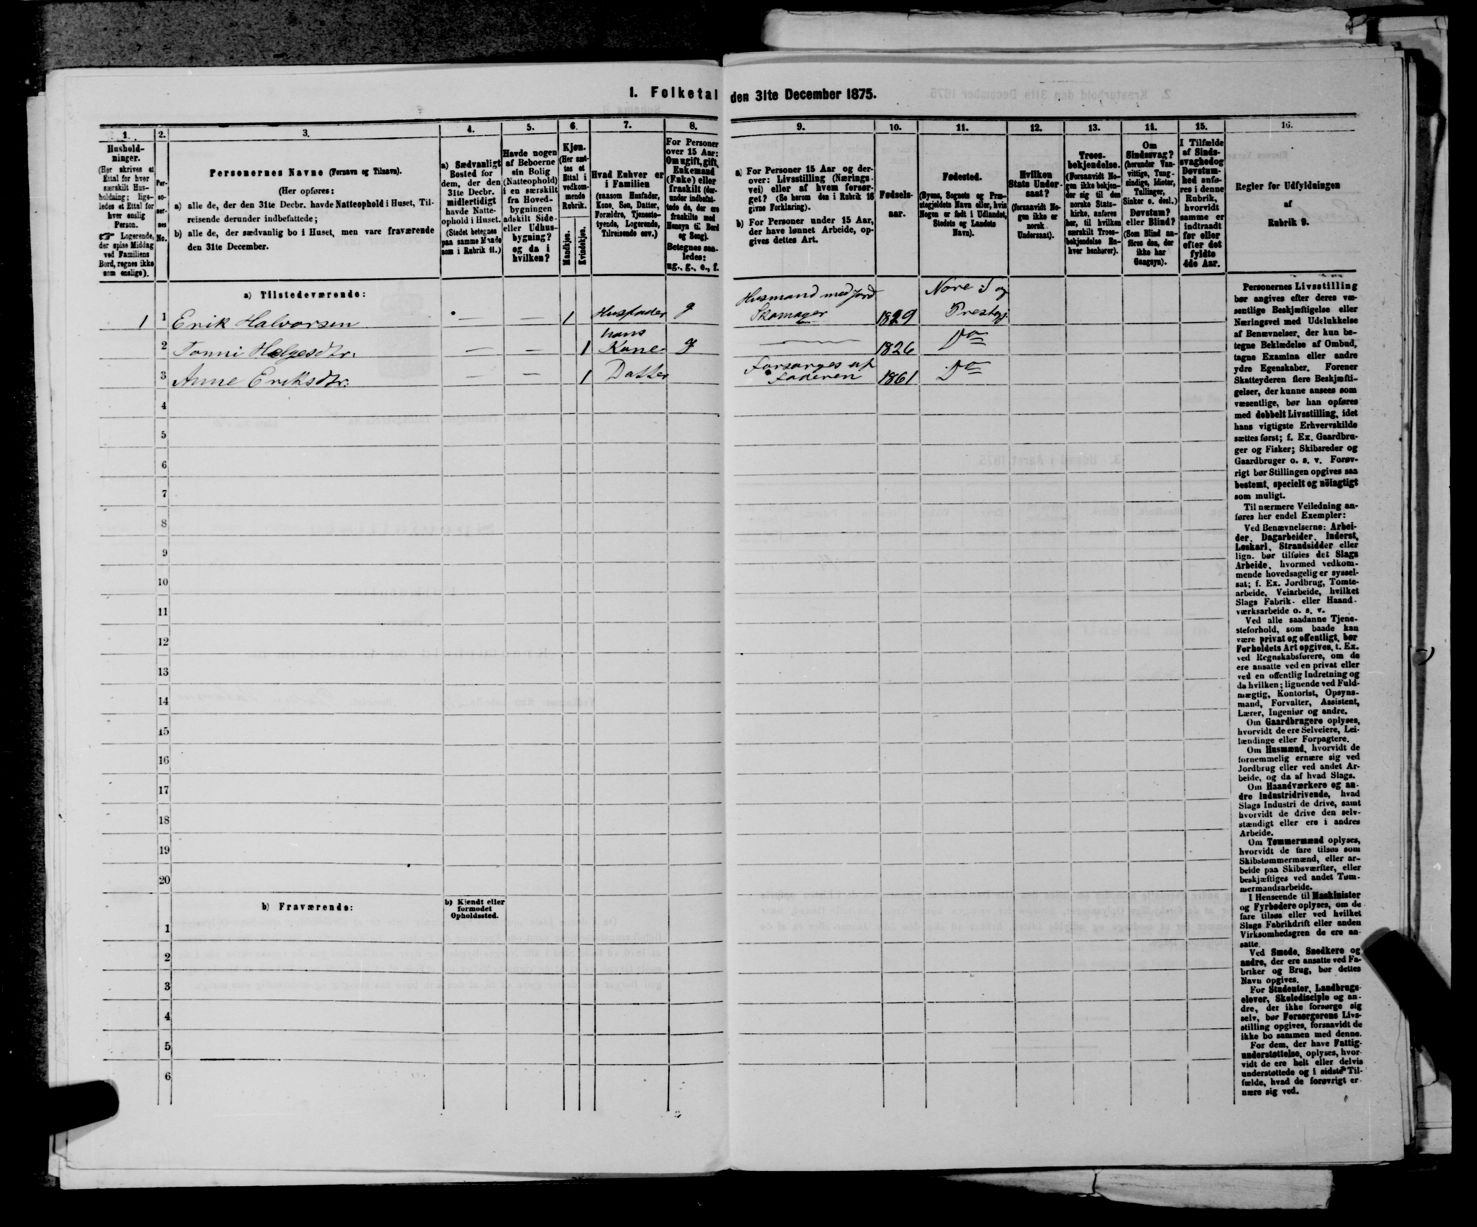 I. Folketal den 31te December 1875.
1.
Hushold-
ninger.
(Her skrives et
Ettal for hver
særskilt Hus-
holdning; lige-
ledes et Ettal for
hver enslig
Person.
☞ Logerende,
der spise Middag
ved Familiens
Bord, regnes ikke
som enslige).
2.
Per-
so-
ner-
nes
No.
3.
Personernes Navne (Fornavn og Tilnavn).
(Her opføres:
a) alle de, der den 31te Decbr. havde Natteophold i Huset, Til-
reisende derunder indbefattede;
b) alle de, der sædvanlig bo i Huset, men vare fraværende
den 31te December.
4.
a) Sædvanligt
Bosted for
dem, der den
31te Decbr.
midlertidigt
havde Natte-
ophold i Huset.
(Stedet betegnes
paa samme Maade
som i Rubrik 11.)
5.
Havde nogen
af Beboerne
sin Bolig
(Natteophold)
i en særskilt
fra Hoved-
bygningen
adskilt Side-
eller Udhus-
bygning?
og da i
hvilken?
6.
Kjøn.
(Her sæt-
tes et
Ettal i
vedkom-
mende
Rubrik.
Mandkjøn.
Kvindekjøn.
7.
Hvad Enhver er
i Familien
(saasom Husfader,
Kone, Søn, Datter,
Forældre, Tjeneste-
tyende, Logerende,
Tilreisende osv.)
8.
For Personer
over 15 Aar:
Om ugift, gift,
Enkemand
(Enke) eller
fraskilt (der-
under indbefat-
tede de, der ere
fraskilte med
Hensyn til Bord
og Seng).
Betegnes saa-
ledes:
ug., g., e., f.
9.
a) For Personer 15 Aar og der-
over: Livsstilling (Nærings-
vei) eller af hvem forsør-
get? (Se herom den i Rubrik 16
givne Forklaring).
b) For Personer under 15 Aar,
der have lønnet Arbeide, op-
gives dettes Art.
10.
Fødsels-
aar.
11.
Fødested.
(Byens, Sognets og Præ-
stegjeldets Navn eller, hvis
Nogen er født i Udlandet,
Stedets og Landets
Navn).
12.
Hvilken
Stats Under-
saat?
(forsaavidt No-
gen ikke er
norsk
Undersaat).
13.
Troes-
bekjendelse.
(Forsaavidt No-
gen ikke bekjen-
der sig til den
norske Stats-
kirke, anføres
her, til hvilken
særskilt Troes-
bekjendelse En-
hver henhører).
14.
Om
Sindssvag?
(herunder Van-
vittige, Tung-
sindige, Idioter,
Tullinger,
Sinker o. desl.)
Døvstum?
eller Blind?
(Som Blind an-
føres den, der
ikke har
Gangsyn).
15.
I Tilfælde
af Sinds-
svaghed og
Døvstum-
hed anfø-
res i denne
Rubrik,
hvorvidt
samme er
indtraadt
før eller
efter det
fyldte
4de Aar.
16.
Regler for Udfyldningen
af
Rubrik 9.
a) Tilstedeværende:
1 1 Erik Halvorsen — — 1 Husfader g Husmand med Jord Skomager 1829 Nore S og Prestgj.
2 Tonni Helgesdtr. — — 1 hans Kone g — 1826 Do
3 Anne Eriksdtr. — — 1 Datter Forsørges af Faderen 1861 Do
4
5
6
7
8
9
10
11
12
13
14
15
16
17
18
19
20
b) Fraværende:
b) Kjendt eller
formodet
Opholdssted.
1
2
3
4
5
6
Personernes Livsstilling
bør angives efter deres væ-
sentlige Beskjæftigelse eller
Næringsvei med Udelukkelse
af Benævnelser, der kun be-
tegne Beklædelse af Ombud,
tagne Examina eller andre
ydre Egenskaber. Forener
Skatteyderen flere Beskjæfti-
gelser, der kunne ansees som
væsentlige, bør han opføres
med dobbelt Livsstilling, idet
hans vigtigste Erhvervskilde
sættes først; f. Ex. Gaardbru-
ger og Fisker; Skibsreder og
Gaardbruger o. s. v. Forøv-
rigt bør Stillingen opgives saa
bestemt, specielt og nöiagtigt
som muligt.
Til nærmere Veiledning an-
føres her endel Exempler:
Ved Benævnelserne: Arbei-
der, Dagarbeider, Inderst,
Løskarl, Strandsidder eller
lign. bør tilføies det Slags
Arbeide, hvormed vedkom-
mende hovedsagelig er syssel-
sat; f. Ex. Jordbrug, Tomte-
arbeide, Veiarbeide, hvilket
Slags Fabrik- eller Haand-
værksarbeide o. s. v.
Ved alle saadanne Tjene-
steforhold, som baade kan
være privat og offentligt, bør
Forholdets Art opgives, t. Ex.
ved Regnskabsførere, om de
ere ansatte ved en privat eller
ved en offentlig Indretning og
da hvilken; lignende ved Fuld-
mægtig, Kontorist, Opsyns-
mand, Forvalter, Assistent,
Lærer, Ingeniør og andre.
Om Gaardbrugere oplyses,
hvorvidt de ere Selveiere, Lei-
lændinge eller Forpagtere.
Om Husmænd, hvorvidt de
fornemmelig ernære sig ved
Jordbrug eller ved andet Ar-
beide, og da af hvad Slags.
Om Haandværkere og an-
dre Industridrivende, hvad
Slags Industri de drive, samt
hvorvidt de drive den selv-
stændigt eller ere i andres
Arbeide.
Om Tømmermænd oplyses,
hvorvidt de fare tilsøs som
Skibstømmermænd, eller ar-
beide paa Skibsværfter, eller
beskjæftiges ved andet Tøm-
mermandsarbeide.
I Henseende til Maskinister
og Fyrbødere oplyses, om de
fare tilsøs eller ved hvilket
Slags Fabrikdrift eller anden
Virksomhedsgren de ere an-
satte.
Ved Smede, Snedkere og
andre, der ere ansatte ved Fa-
briker og Brug, bør dettes
Navn opgives.
For Studenter, Landbrugs-
elever, Skoledisciple og an-
dre, der ikke forsørge sig
selv, bør Forsørgerens Livs-
stilling opgives, forsaavidt de
ikke bo sammen med denne.
For dem, der have Fattig-
understøttelse, oplyses, hvor-
vidt de ere helt eller delvis
understøttede og i sidste Til-
fælde, hvad de forøvrigt er-
nære sig ved.